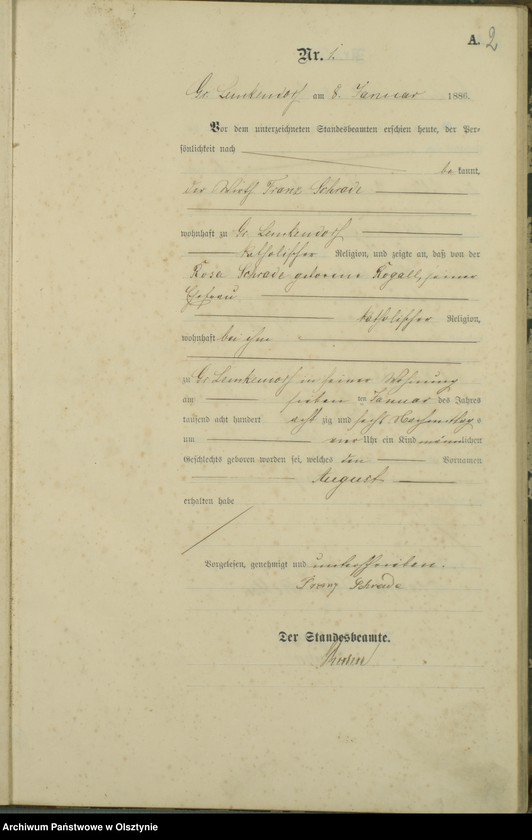 A. 2
Nr. 1.
Gr. Lemkendorf am 8. Januar 1886.
Vor dem unterzeichneten Standesbeamten erschien heute, der Per-
sönlichkeit nach
be kannt,
der Wirth Franz Schrade
wohnhaft zu Gr. Lemkendorf
katholischer Religion, und zeigte an, daß von der
Rosa Schrade geborene Rogall, seiner
Ehefrau
katholischer Religion,
wohnhaft bei ihm
zu Gr. Lemkendorf in seiner Wohnung
am sieben ten Januar des Jahres
tausend acht hundert acht zig und sechs Nachmittags
um vier Uhr ein Kind männlichen
Geschlechts geboren worden sei, welches den Vornamen
August
erhalten habe
Vorgelesen, genehmigt und unterschrieben.
Franz Schrade
Der Standesbeamte.
Archiwum Państwowe w Olsztynie